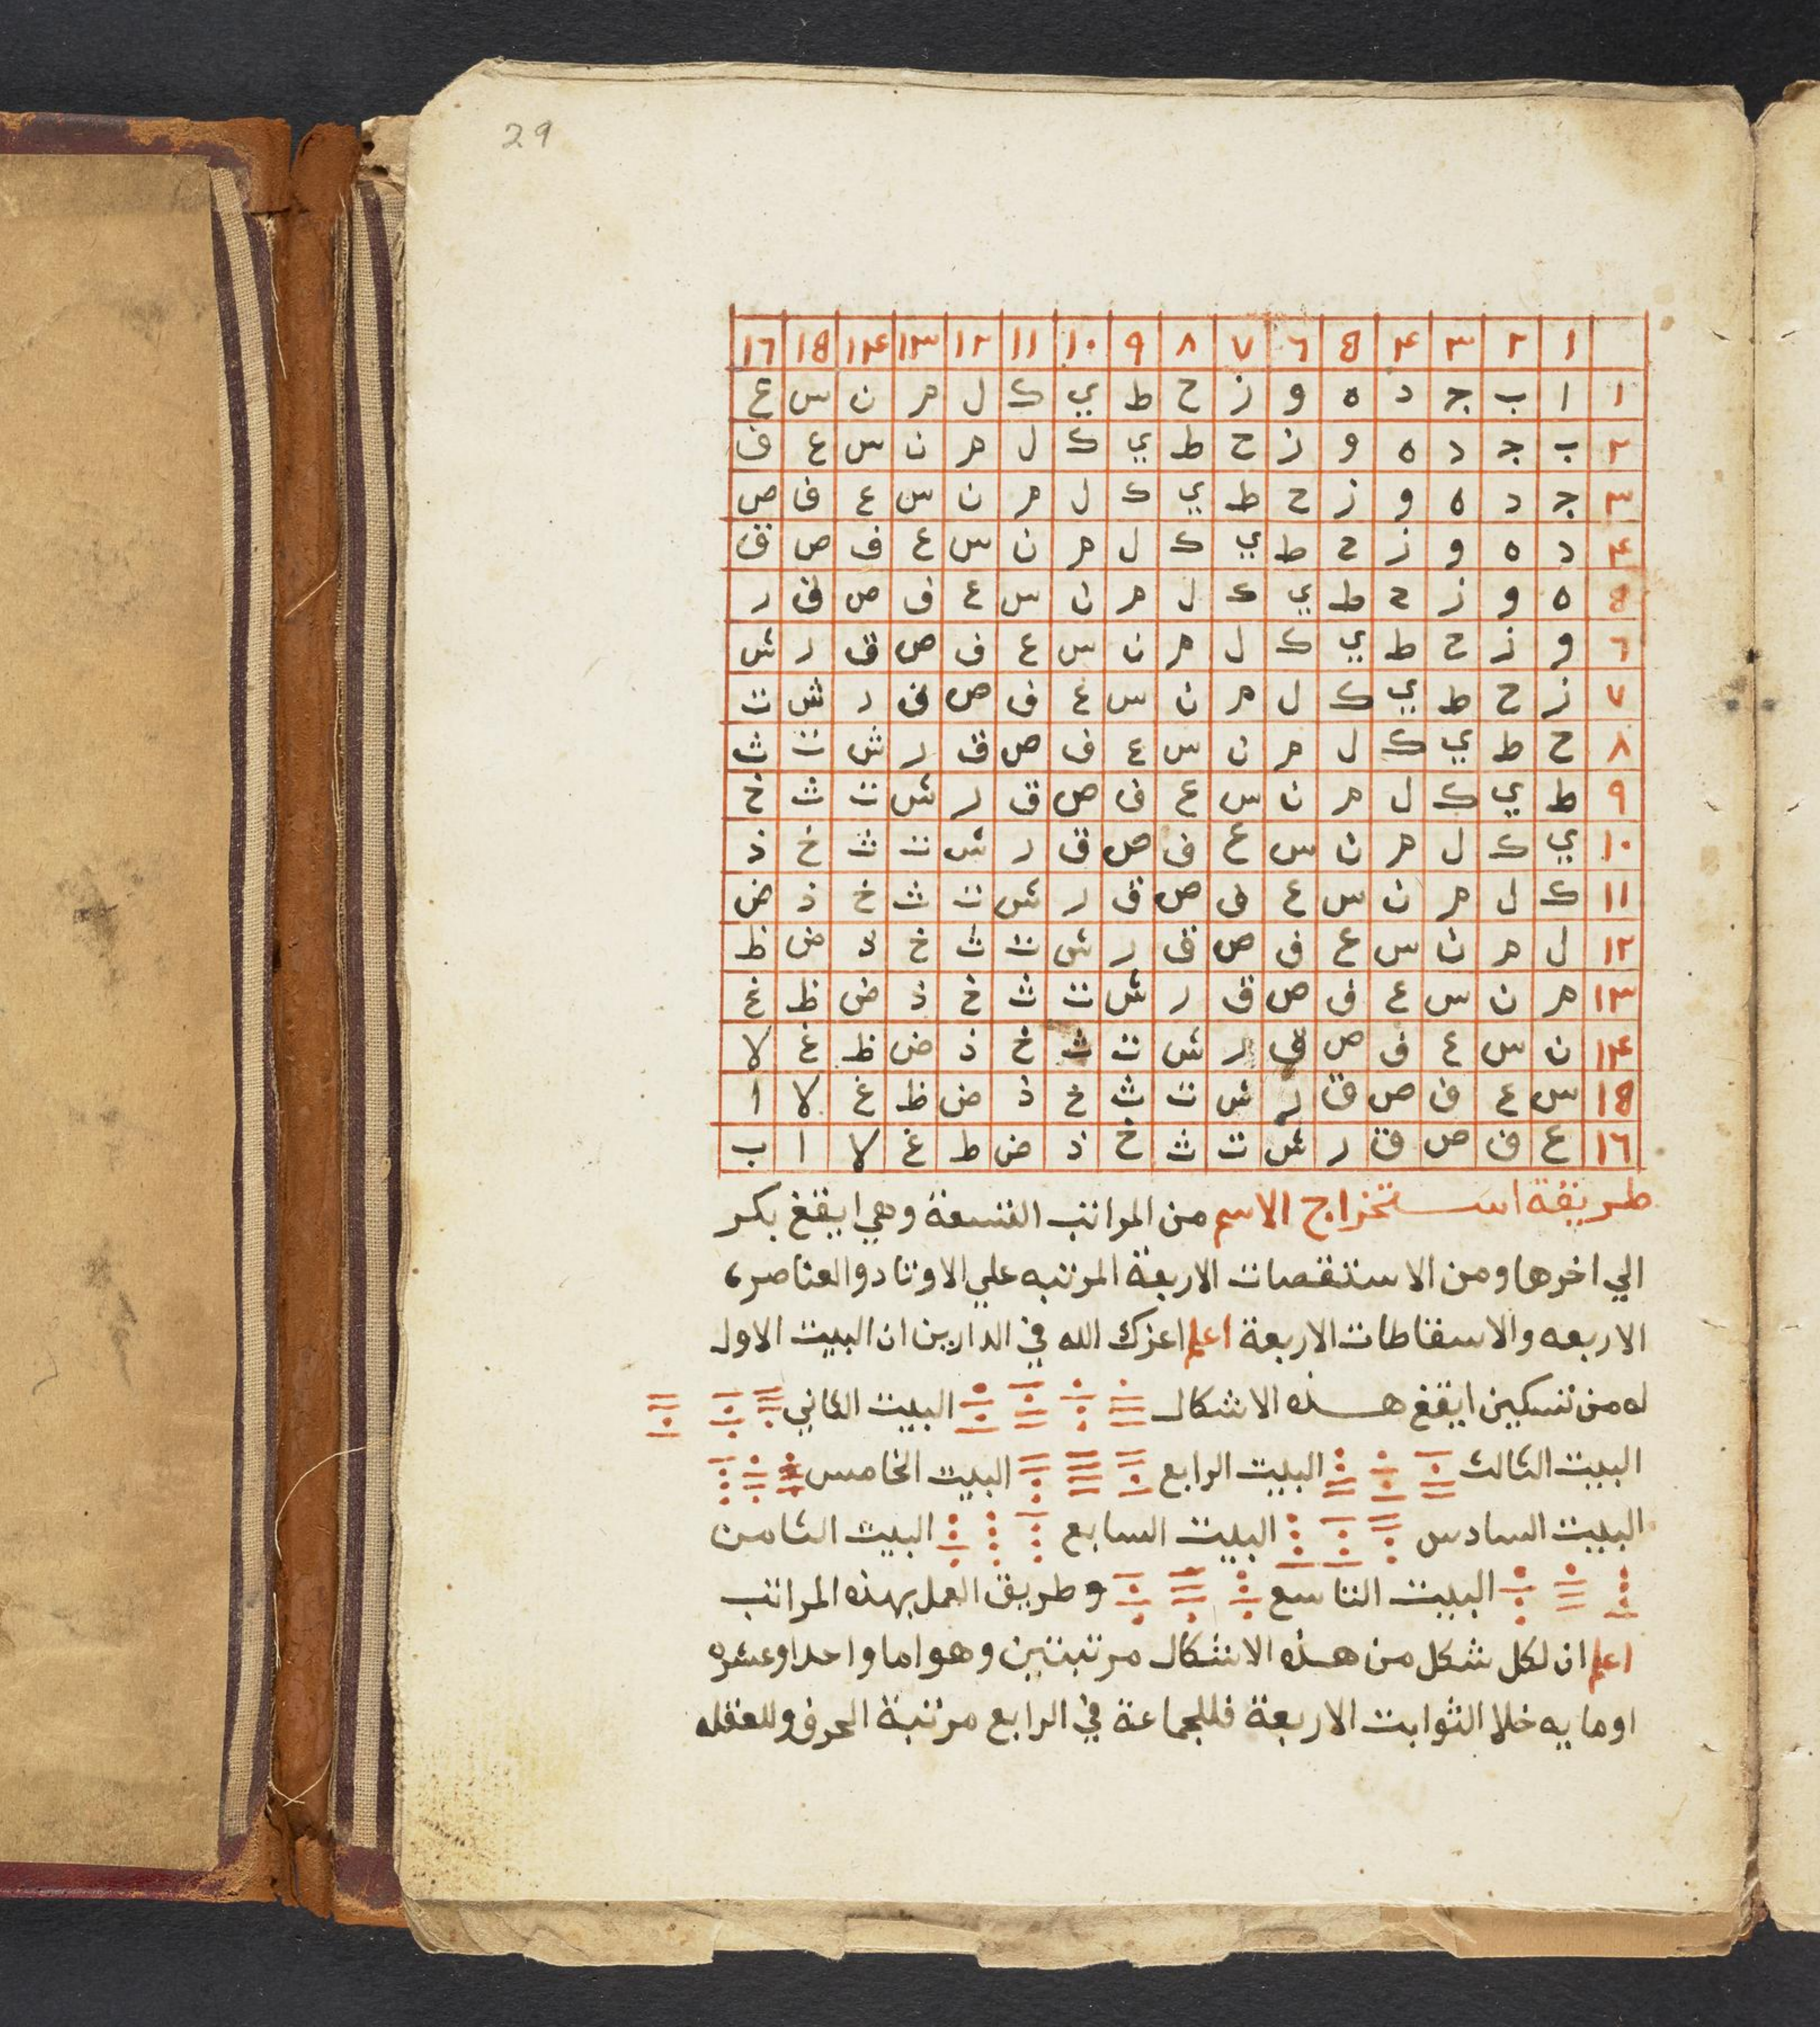 29
١ ٢ ٣ ۴ ٥ ٦ ٧ ٨ ٩ ١٠ ١١ ١٢ ١٣ ١۴ ١٥ ١٦
١ ا ب ج د ه و ز ح ط ي ك ل م ن س ع
٢ ب ج د ه و ز ح ط ي ك ل م ن س ع ف
٣ ج د ه و ز ح ط ي ك ل م ن س ع ف ص
۴ د ه و ز ح ط ي ك ل م ن س ع ف ص ق
٥ ه و ز ح ط ي ك ل م ن س ع ف ص ق ر
٦ و ز ح ط ي ك ل م ن س ع ف ص ق ر ش
٧ ز ح ط ي ك ل م ن س ع ف ص ق ر ش ت
٨ ح ط ي ك ل م ن س ع ف ص ق ر ش ت ث
٩ ط ي ك ل م ن س ع ف ص ق ر ش ت ث خ
١٠ ي ك ل م ن س ع ف ص ق ر ش ت ث خ ذ
١١ ك ل م ن س ع ف ص ق ر ش ت ث خ ذ ض
١٢ ل م ن س ع ف ص ق ر ش ت ث خ ذ ض ظ
١٣ م ن س ع ف ص ق ر ش ت ث خ ذ ض ظ غ
١۴ ن س ع ف ص ق ر ش ت ث خ ذ ض ظ غ لا
١٥ س ع ف ص ق ر ش ت ث خ ذ ض ظ غ لا ا
١٦ ع ف ص ق ر ش ت ث خ ذ ض ط غ لا ا ب
طريقة استخراج الاسم من المراتب التسعة وهي ايقغ بكر
الي اخرها ومن الاستقصات الاربعة المرتبه علي الاوتاد والعناصر
الاربعه والاسقاطات الاربعة اعلم اعزك الله في الدارين ان البيت الاول
له من تسكين ايقغ هذه الاشكال البيت الثاني
البيت الثالث البيت الرابع البيت الخامس
البيت السادس البيت السابع البيت الثامن
البيت التاسع وطريق العمل بهذه المراتب
اعلم ان لكل شكل من هذه الاشكال مرتبتين وهو اما واحدا وعشره
اومايه خلا الثوابت الاربعة فللجماعة في الرابع مرتبة الحرف وللعقله